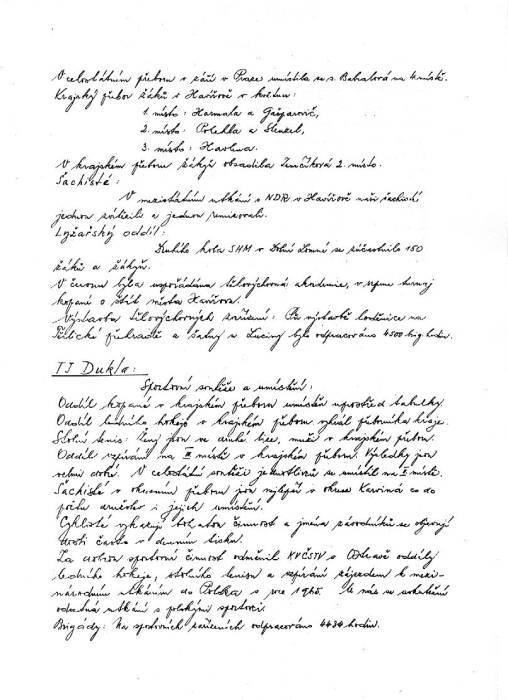 V celostátním přeboru v září v Praze umístila se s. Babalová na 4. místě.
Krajský přebor žáků v Havířově v květnu:
1. místo: Harmala a Gašparovič,
2. místo: Polehla a Stenzel,
3. místo: Havlena.
V krajském přeboru žákyň obsadila Zemčíková 2. místo.
Šachisté:
V mezistátním utkání s NDR v Havířově naši šachisté
jednou zvítězili a jednou remizovali.
Lyžařský oddíl:
Druhého kola SHM v Dolní Lomné se zúčastnilo 150
žáků a žákyň.
V červnu byla uspořádána tělovýchovná akademie, v srpnu turnaj
kopané o štít města Havířova.
Výstavba tělovýchovných zařízení: Na výstavbě loděnice na
Těrlické přehradě a šatny u Luciny bylo odpracováno 4500 brig. hodin.
TJ Dukla:
Sportovní soutěže a umístění:
Oddíl kopané v krajském přeboru umístěn uprostřed tabulky.
Oddíl ledního hokeje v krajském přeboru vyhrál přeborníka kraje.
Stolní tenis: Ženy jsou ve druhé lize, muži v krajském přeboru.
Oddíl vzpírání na II místě v krajském přeboru. Výsledky jsou
velmi dobré. V celostátní soutěži jednotlivců se umístil na I místě.
Šachisté v okresním přeboru jsou nejlepší v okrese Karviná co do
počtu mužstev i jejich umístění.
Cyklisté vykazují bohatou činnost a jména závodníků se objevují
dosti často v denním tisku.
Za dobrou sportovní činnost odměnil KVČSTV v Ostravě oddíly
ledního hokeje, stolního tenisu a vzpírání zájezdem k mezi-
národním utkáním do Polska v roce 1965. U nás se uskuteční
odvetná utkání s polskými sportovci.
Brigády: Na sportovních zařízeních odpracováno 4434 hodin.